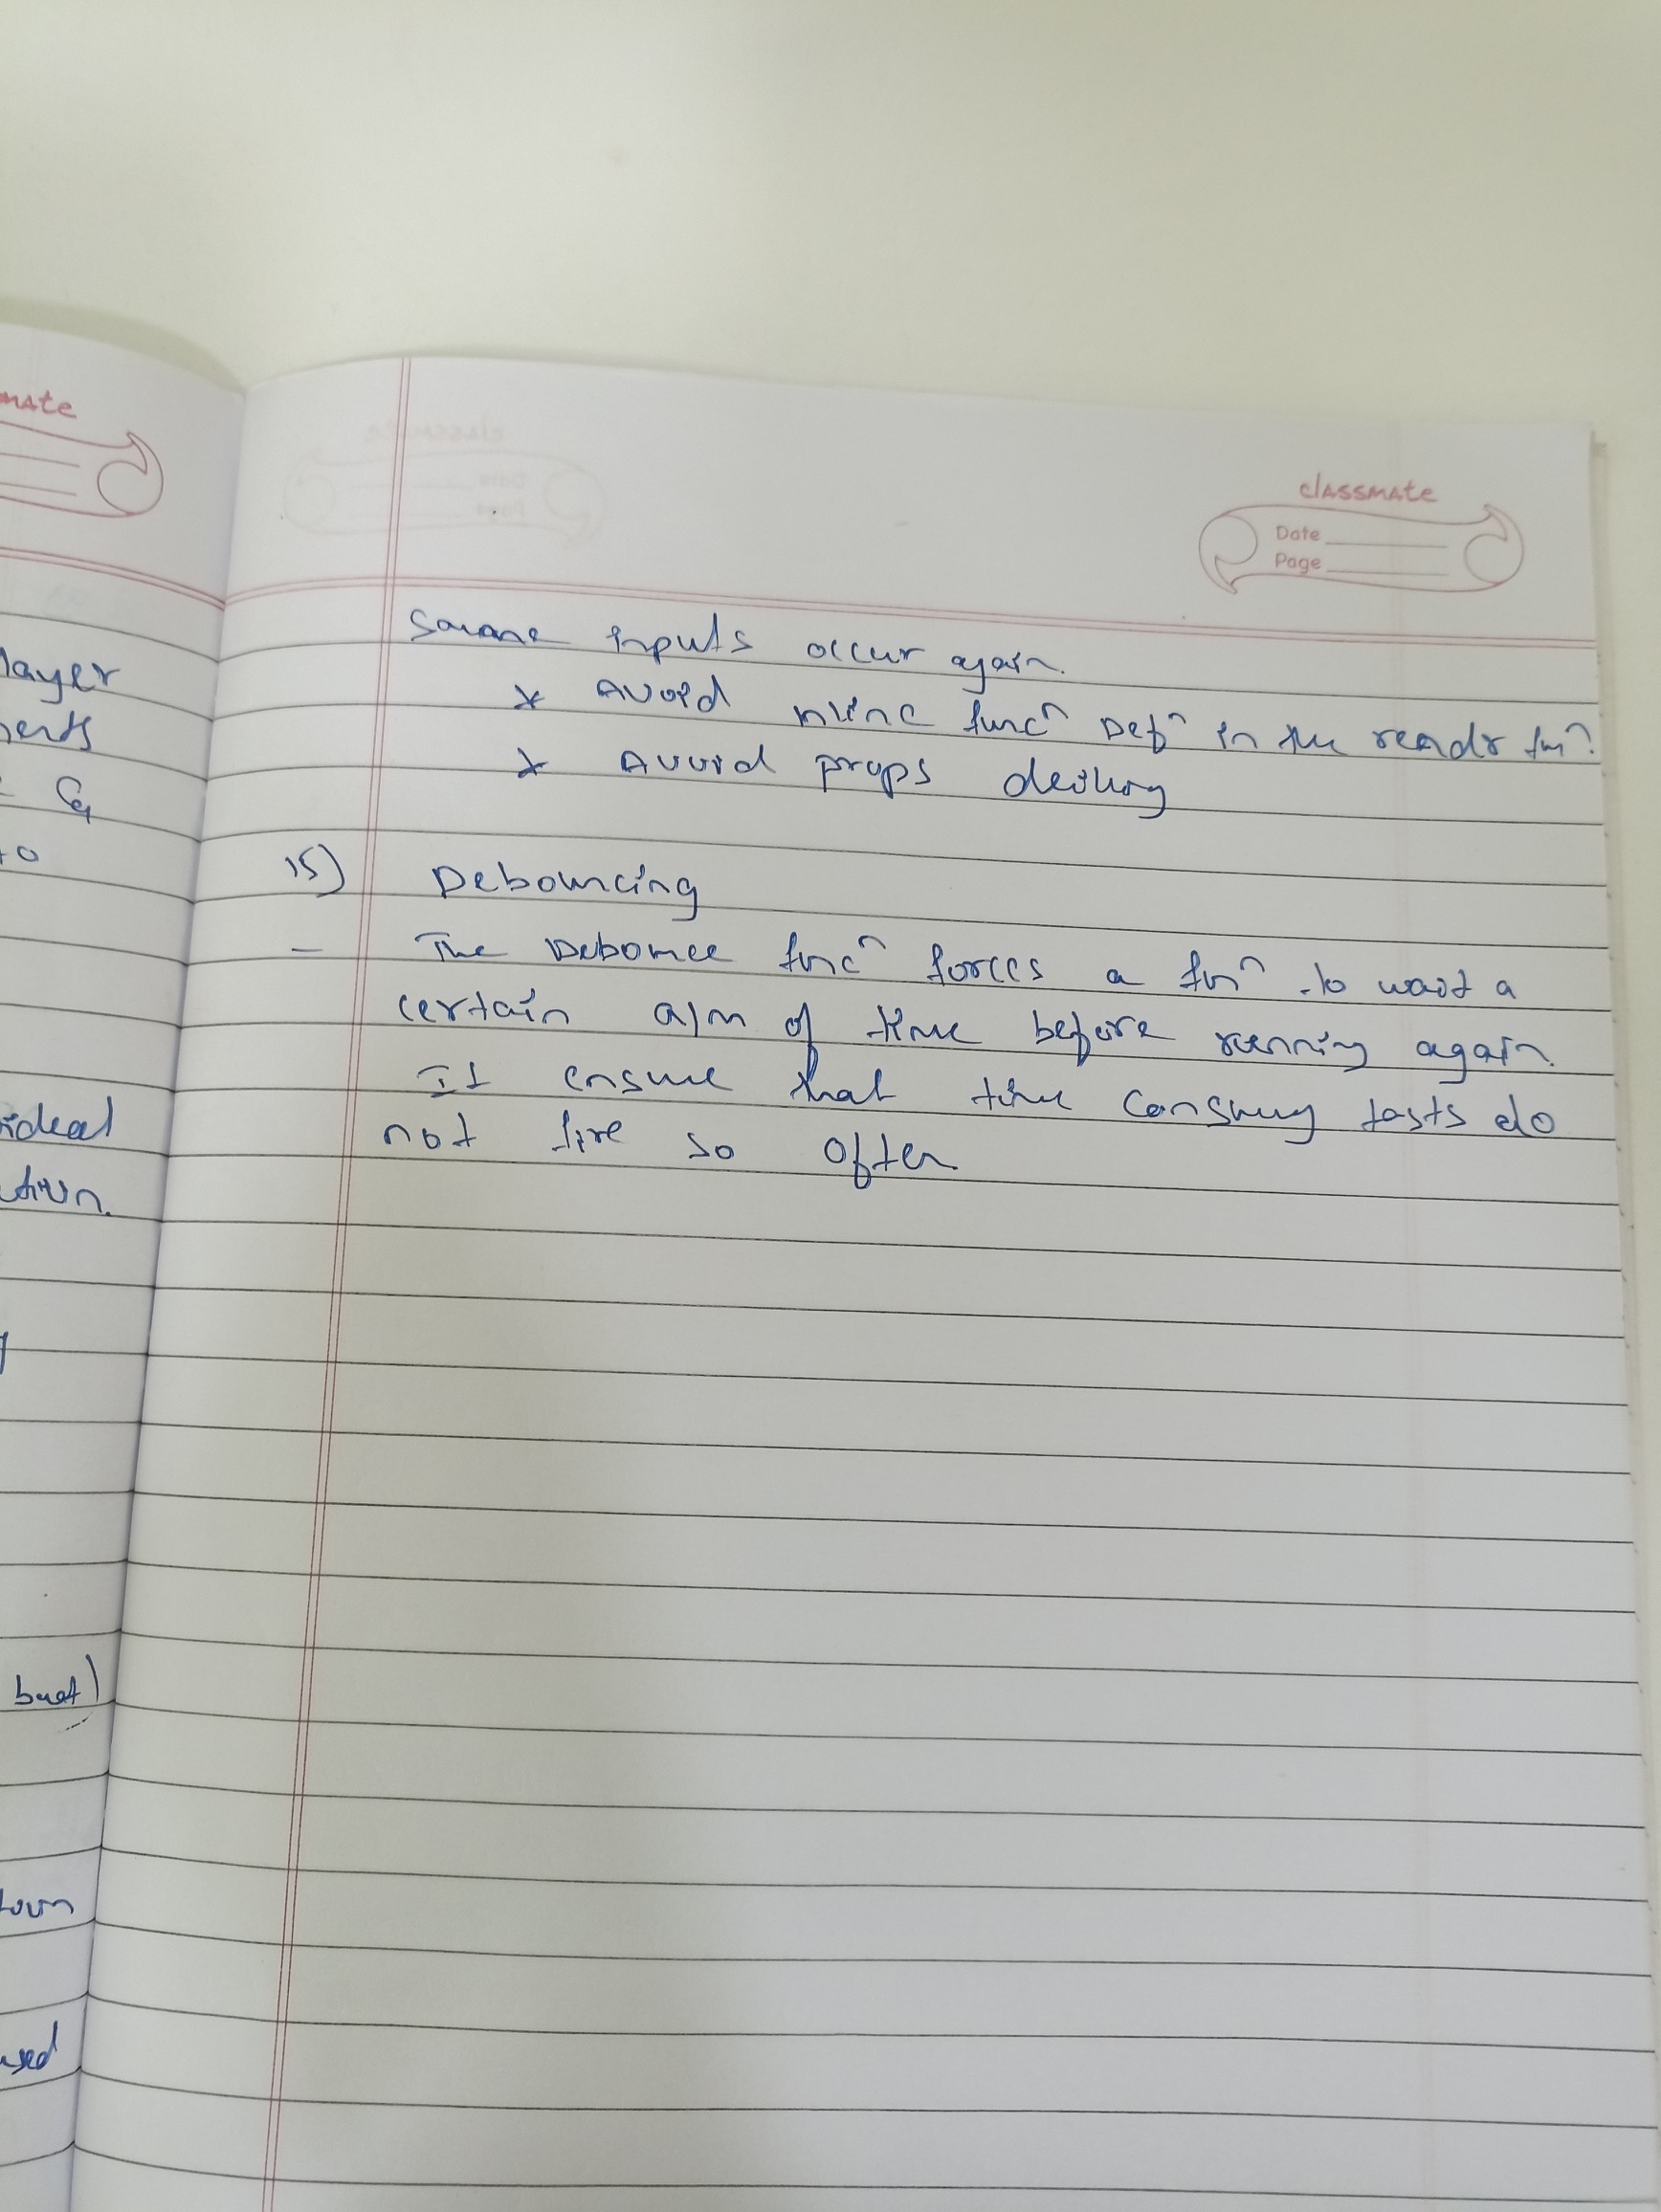 mate
layer
ments
to
ideal
tion.
but)
town
used
classmate
Date
Page
same inputs occur again.
* Avoid inline funcⁿ Defⁿ in the rendr funⁿ.
* Avoid props drilling
15) Debouncing
- The Debounce funcⁿ forces a funⁿ to wait a
certain a/m of time before running again.
It ensure that time consuming tasts do
not fire so often